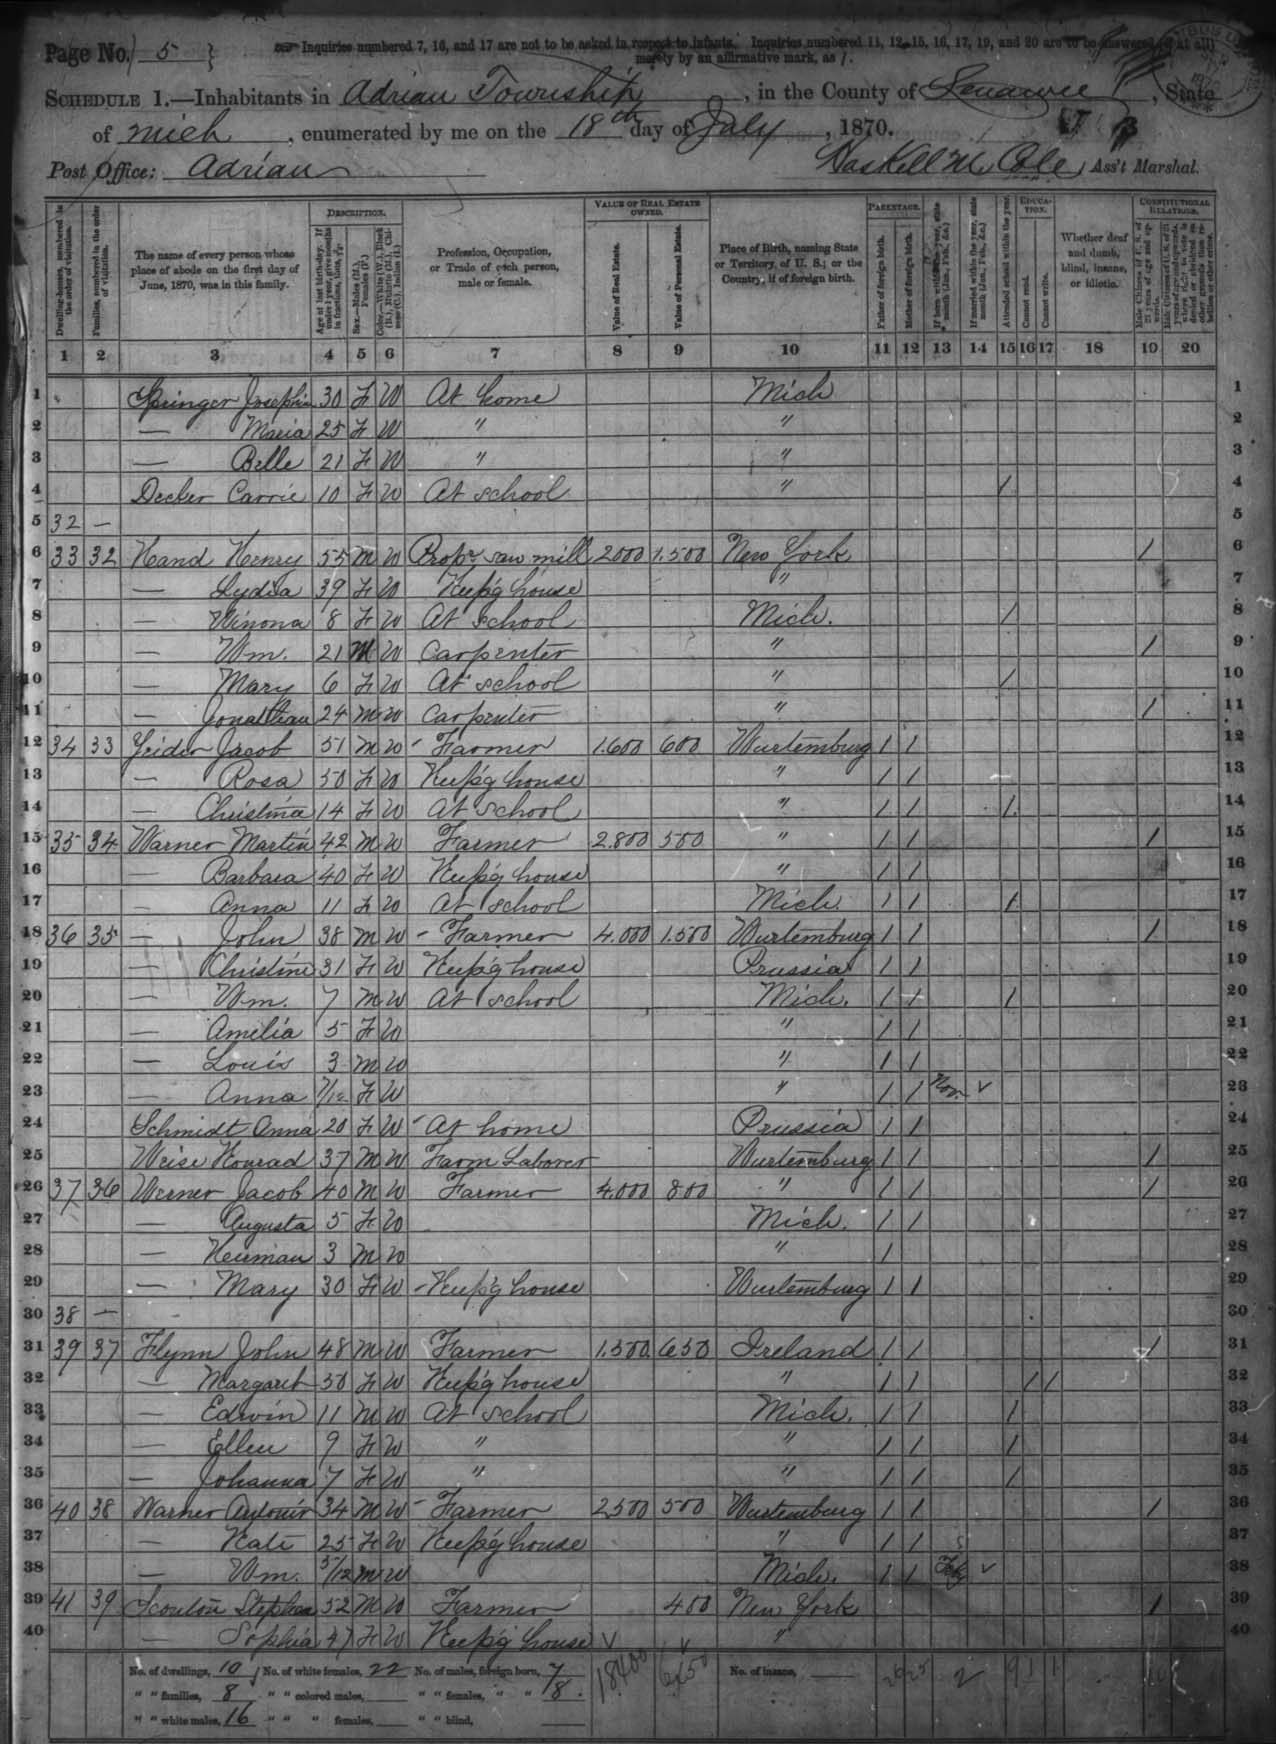 Page No. 5 } Inquiries numbered 7, 16, and 17 are not to be asked in respect to infants. Inquiries numbered 11, 12, 15, 16, 17, 19, and 20 are to be answered (if at all)
merely by an affirmative mark, as /.
SCHEDULE 1.—Inhabitants in Adrian Township, in the County of Lenawee, State
of Mich, enumerated by me on the 18th day of July, 1870.
Post Office: Adrian Haskell M Cole, Ass't Marshal.
Dwelling-houses, numbered in the order of visitation.
Families, numbered in the order of visitation.
The name of every person whose place of abode on the first day of June, 1870, was in this family.
DESCRIPTION.
Age at last birth-day. If under 1 year, give months in fractions, thus, 3/12.
Sex.—Males (M.), Females (F.)
Color.—White (W.), Black (B.), Mulatto (M.), Chinese (C.), Indian (I.)
Profession, Occupation, or Trade of each person, male or female.
VALUE OF REAL ESTATE OWNED.
Value of Real Estate.
Value of Personal Estate.
Place of Birth, naming State or Territory, of U. S.; or the Country, if of foreign birth.
PARENTAGE.
Father of foreign birth.
Mother of foreign birth.
If born within the year, state month (Jan., Feb., &c.)
If married within the year, state month (Jan., Feb., &c.)
Attended school within the year.
EDUCATION.
Cannot read.
Cannot write.
Whether deaf and dumb, blind, insane, or idiotic.
CONSTITUTIONAL RELATIONS.
Male Citizens of U. S. of 21 years of age and upwards.
1 2 3 4 5 6 7 8 9 10 11 12 13 14 15 16 17 18 19 20
1 Springer Josephin 30 F W At home Mich 1
2 — Maria 25 F W " " 2
3 — Belle 21 F W " " 3
4 Decker Carrie 10 F W At school " / 4
5 32 — 5
6 33 32 Hand Henry 55 M W Propr saw mill 2000 1.500 New York / 6
7 — Lydia 39 F W Keep'g house " 7
8 — Winona 8 F W At school Mich. / 8
9 — Wm. 21 M W Carpenter " / 9
10 — Mary 6 F W At school " / 10
11 — Jonathan 24 M W Carpenter " / 11
12 34 33 Yeider Jacob 51 M W Farmer 1.600 600 Wurtemburg / / 12
13 — Rosa 50 F W Keep'g house " / / 13
14 — Christina 14 F W At school " / / / 14
15 35 34 Warner Martin 42 M W Farmer 2.800 500 " / / / 15
16 — Barbara 40 F W Keep'g house " / / 16
17 — Anna 11 F W At school Mich. / / / 17
18 36 35 — John 38 M W – Farmer 4.000 1.500 Wurtemburg / / / 18
19 — Christine 31 F W Keep'g house Prussia / / 19
20 — Wm. 7 M W At school Mich. / / / 20
21 — Amelia 5 F W " / / 21
22 — Louis 3 M W " / / 22
23 — Anna 7/12 F W " / / Nov. ✓ 23
24 Schmidt Anna 20 F W At home Prussia / / 24
25 Weise Konrad 37 M W Farm Laborer Wurtemburg / / / 25
26 37 36 Werner Jacob 40 M W Farmer 4.000 800 " / / / 26
27 — Augusta 5 F W Mich. / / 27
28 — Herman 3 M W " / 28
29 — Mary 30 F W – Keep'g house Wurtemburg / / 29
30 38 — 30
31 39 37 Flynn John 48 M W Farmer 1.500 650 Ireland / / / 31
32 — Margaret 50 F W Keep'g house " / / / / 32
33 — Edwin 11 M W At school Mich. / / / 33
34 — Ellen 9 F W " " / / / 34
35 — Johanna 7 F W " " / / / 35
36 40 38 Warner Antonio 34 M W – Farmer 2.500 500 Wurtemburg / / / 36
37 — Kate 25 F W Keep'g house " / / 37
38 — Wm. 5/12 M W Mich. / / Feb ✓ 38
39 41 39 Scouton Stephen 52 M W Farmer 400 New York / 39
40 — Sophia 47 F W Keep'g house " 40
No. of dwellings, 10 No. of white females, 22 No. of males, foreign born, 7 18400 6450 No. of insane, 26 25 2 9 1 1
" " families, 8 " " colored males, " " females, " " 8.
" " white males, 16 " " " females, " " blind,